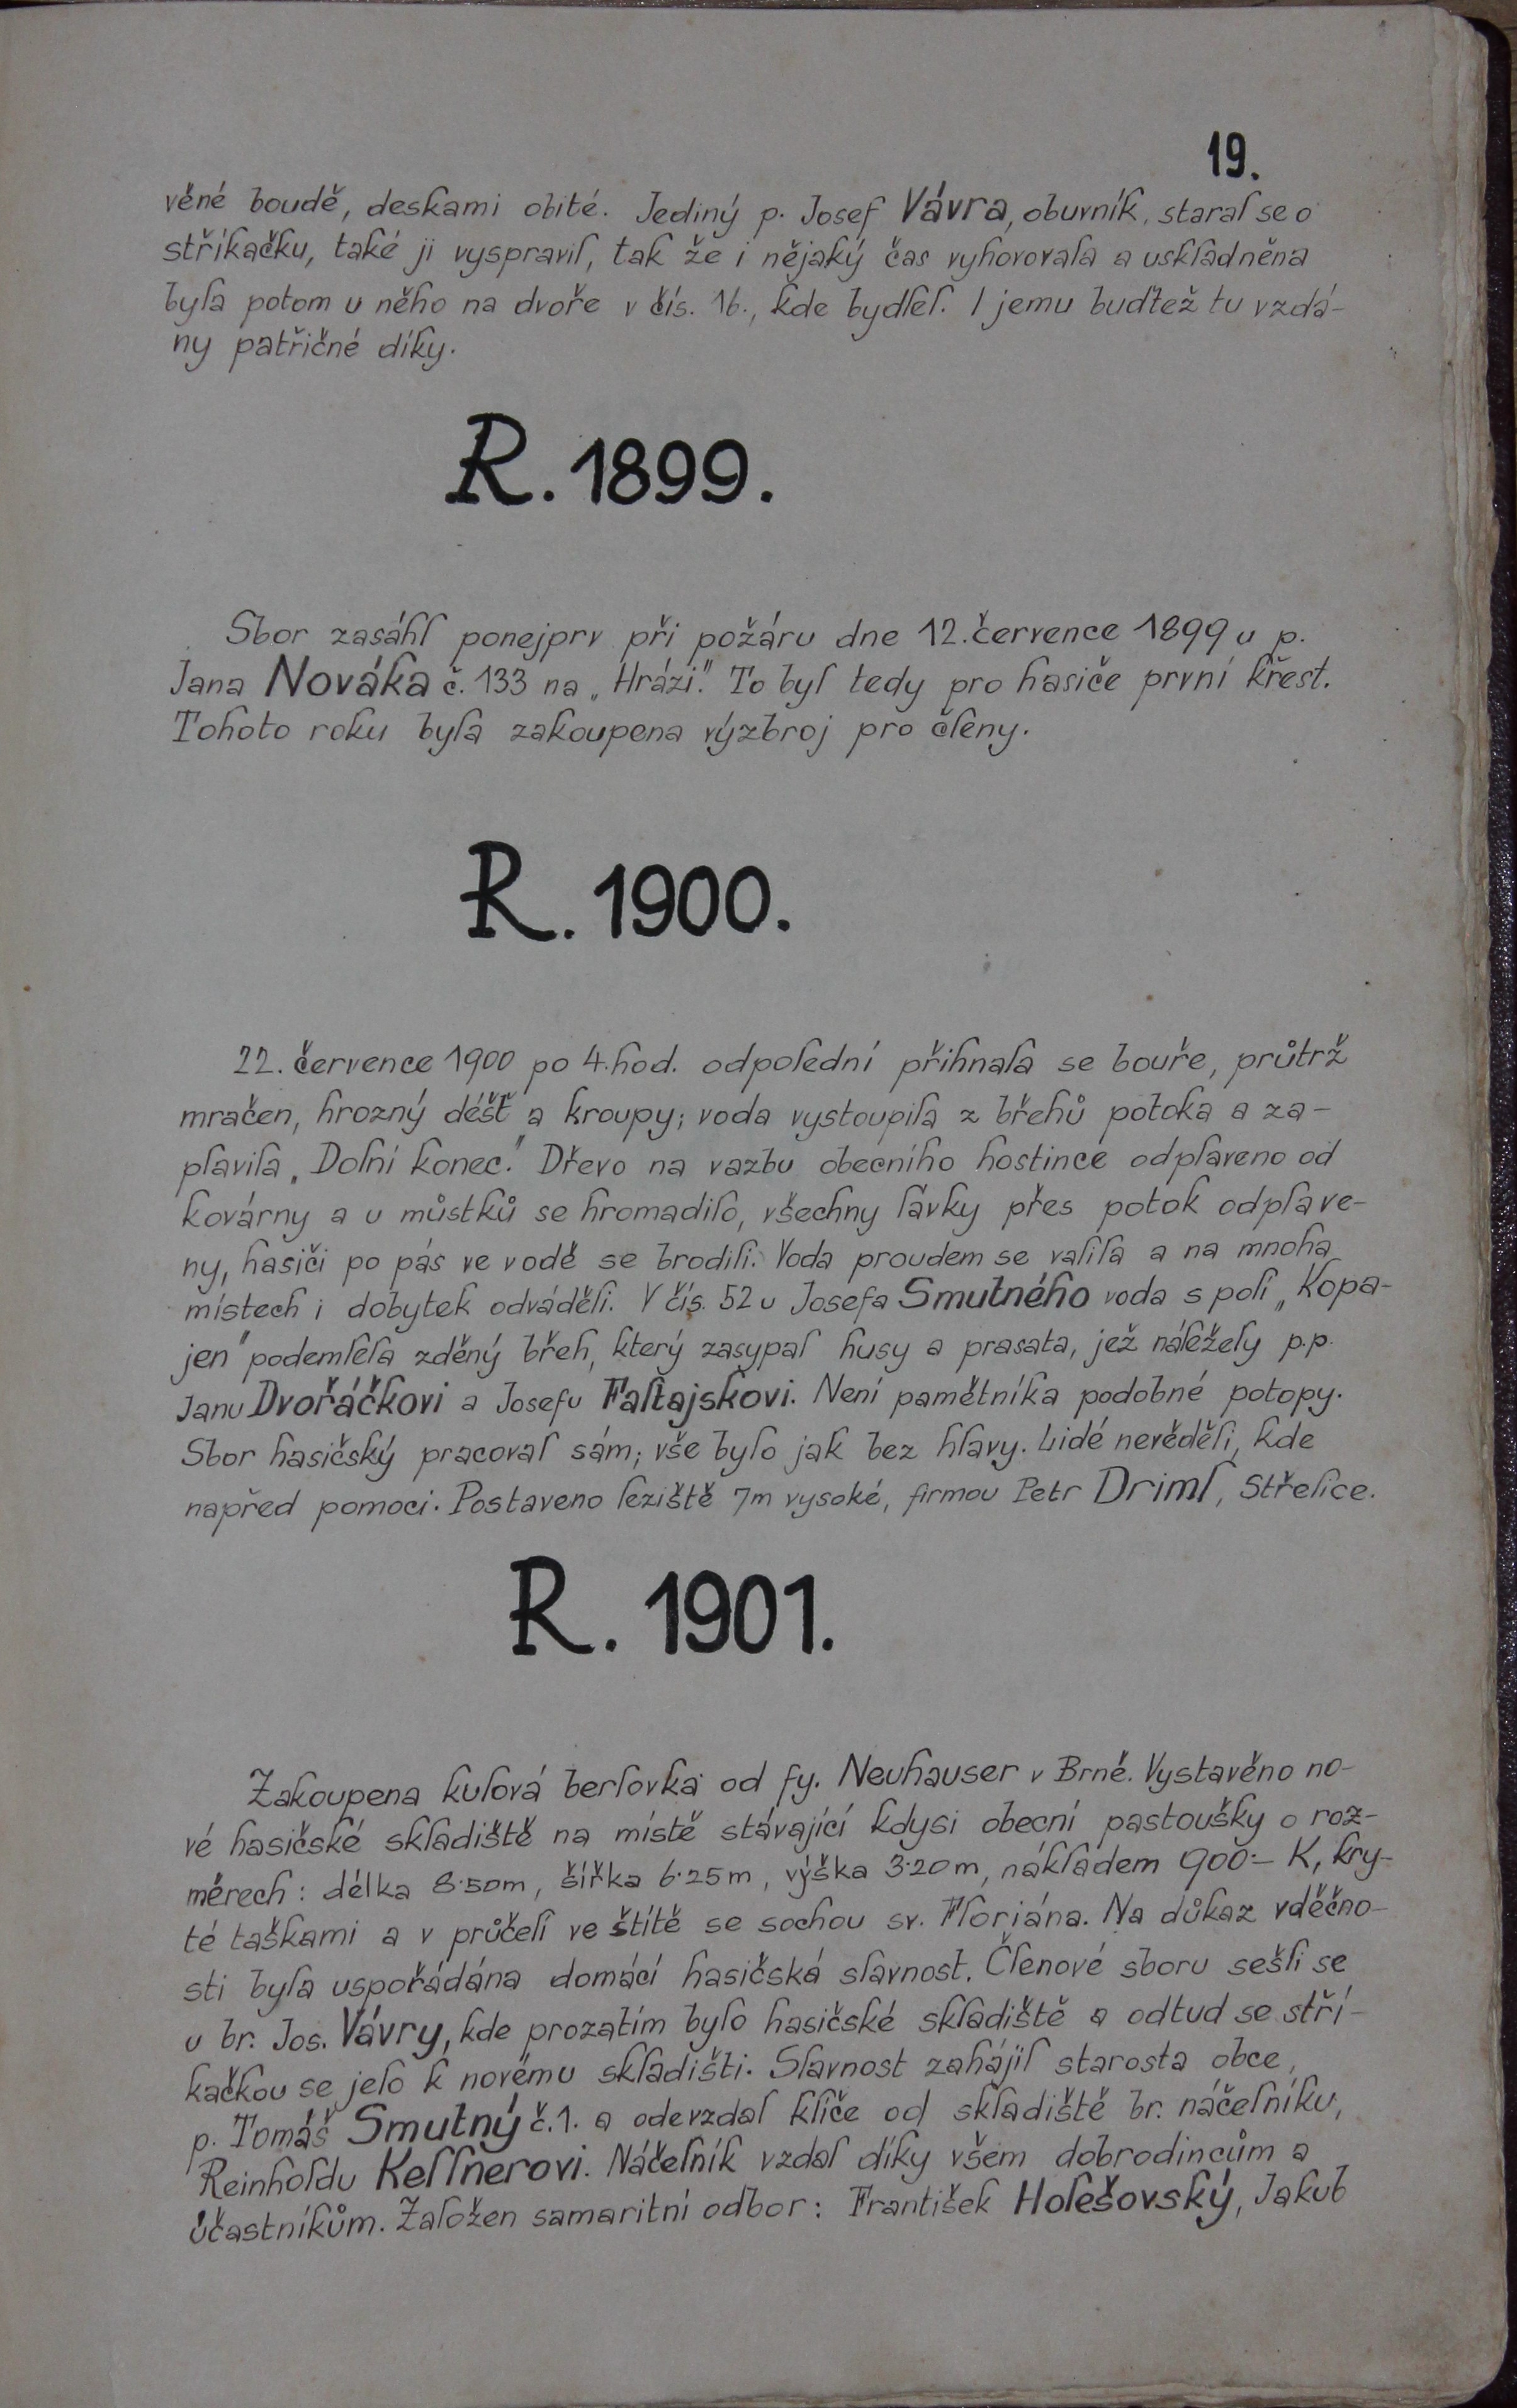 19.
věné boudě, deskami obité. Jediný p. Josef Vávra, obuvník, staral se o
stříkačku, také ji vyspravil, tak že i nějaký čas vyhovovala a uskladněna
byla potom u něho na dvoře v čís. 16., kde bydlel. I jemu buďtež tu vzdá-
ny patřičné díky.
R. 1899.
Sbor zasáhl ponejprv při požáru dne 12. července 1899 u p.
Jana Nováka č. 133 na „Hrázi." To byl tedy pro hasiče první křest.
Tohoto roku byla zakoupena výzbroj pro členy.
R. 1900.
22. července 1900 po 4. hod. odpolední přihnala se bouře, průtrž
mračen, hrozný déšť a kroupy; voda vystoupila z břehů potoka a za-
plavila „Dolní konec." Dřevo na vazbu obecního hostince odplaveno od
kovárny a u můstků se hromadilo, všechny lávky přes potok odplave-
ny, hasiči po pás ve vodě se brodili. Voda proudem se valila a na mnoha
místech i dobytek odváděli. V čís. 52 u Josefa Smutného voda s polí „Kopa-
jen" podemlela zděný břeh, který zasypal husy a prasata, jež náležely p.p.
Janu Dvořáčkovi a Josefu Faltajskovi. Není pamětníka podobné potopy.
Sbor hasičský pracoval sám; vše bylo jak bez hlavy. Lidé nevěděli, kde
napřed pomoci. Postaveno leziště 7m vysoké, firmou Petr Driml, Střelice.
R. 1901.
Zakoupena kulová berlovka od fy. Neuhauser v Brně. Vystavěno no-
vé hasičské skladiště na místě stávající kdysi obecní pastoušky o roz-
měrech: délka 8·50m, šířka 6·25m, výška 3·20m, nákladem 900·- K, kry-
té taškami a v průčelí ve štítě se sochou sv. Floriána. Na důkaz vděčno-
sti byla uspořádána domácí hasičská slavnost. Členové sboru sešli se
u br. Jos. Vávry, kde prozatím bylo hasičské skladiště a odtud se stří-
kačkou se jelo k novému skladišti. Slavnost zahájil starosta obce,
p. Tomáš Smutný č.1. a odevzdal klíče od skladiště br. náčelníku,
Reinholdu Kellnerovi. Náčelník vzdal díky všem dobrodincům a
účastníkům. Založen samaritní odbor: František Holešovský, Jakub